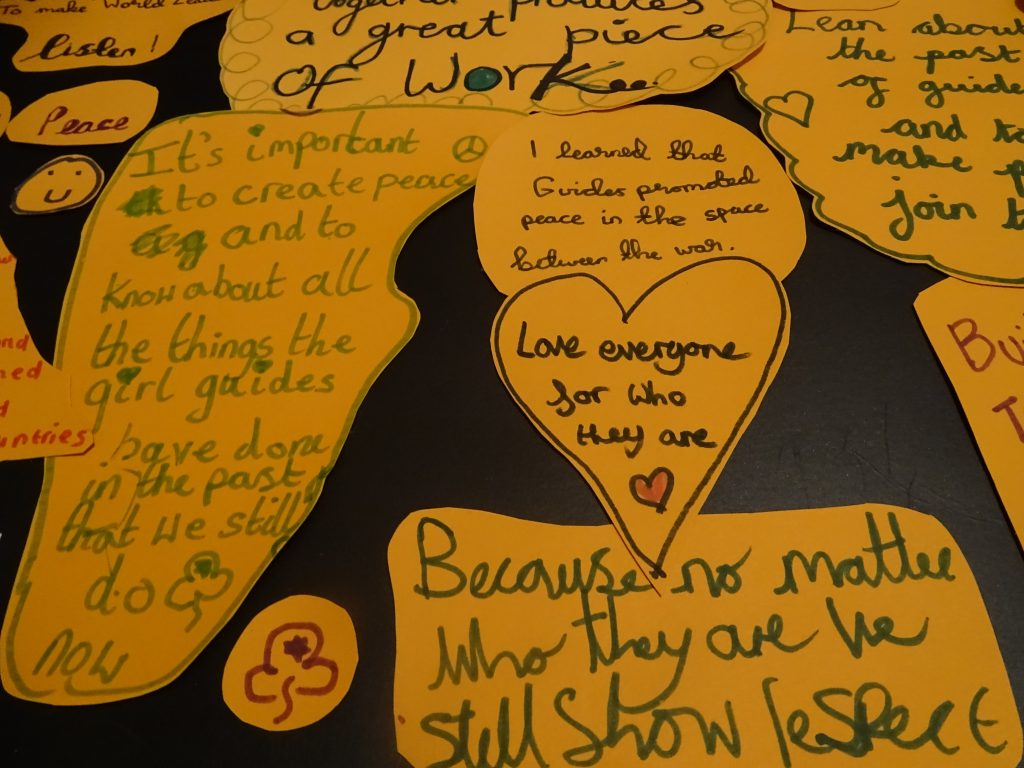 To make World
Listen!
Peace
together produces
a great piece
of Work
Lean about
the past
of guide
and to
make
join
It's important
to create peace
and to
know about all
the things the
girl guides
have done
in the past
that we still
do
now
I learned that
Guides promoted
peace in the space
between the war.
Love everyone
for who
they are
Because no matter
who they are we
still show respect
untries